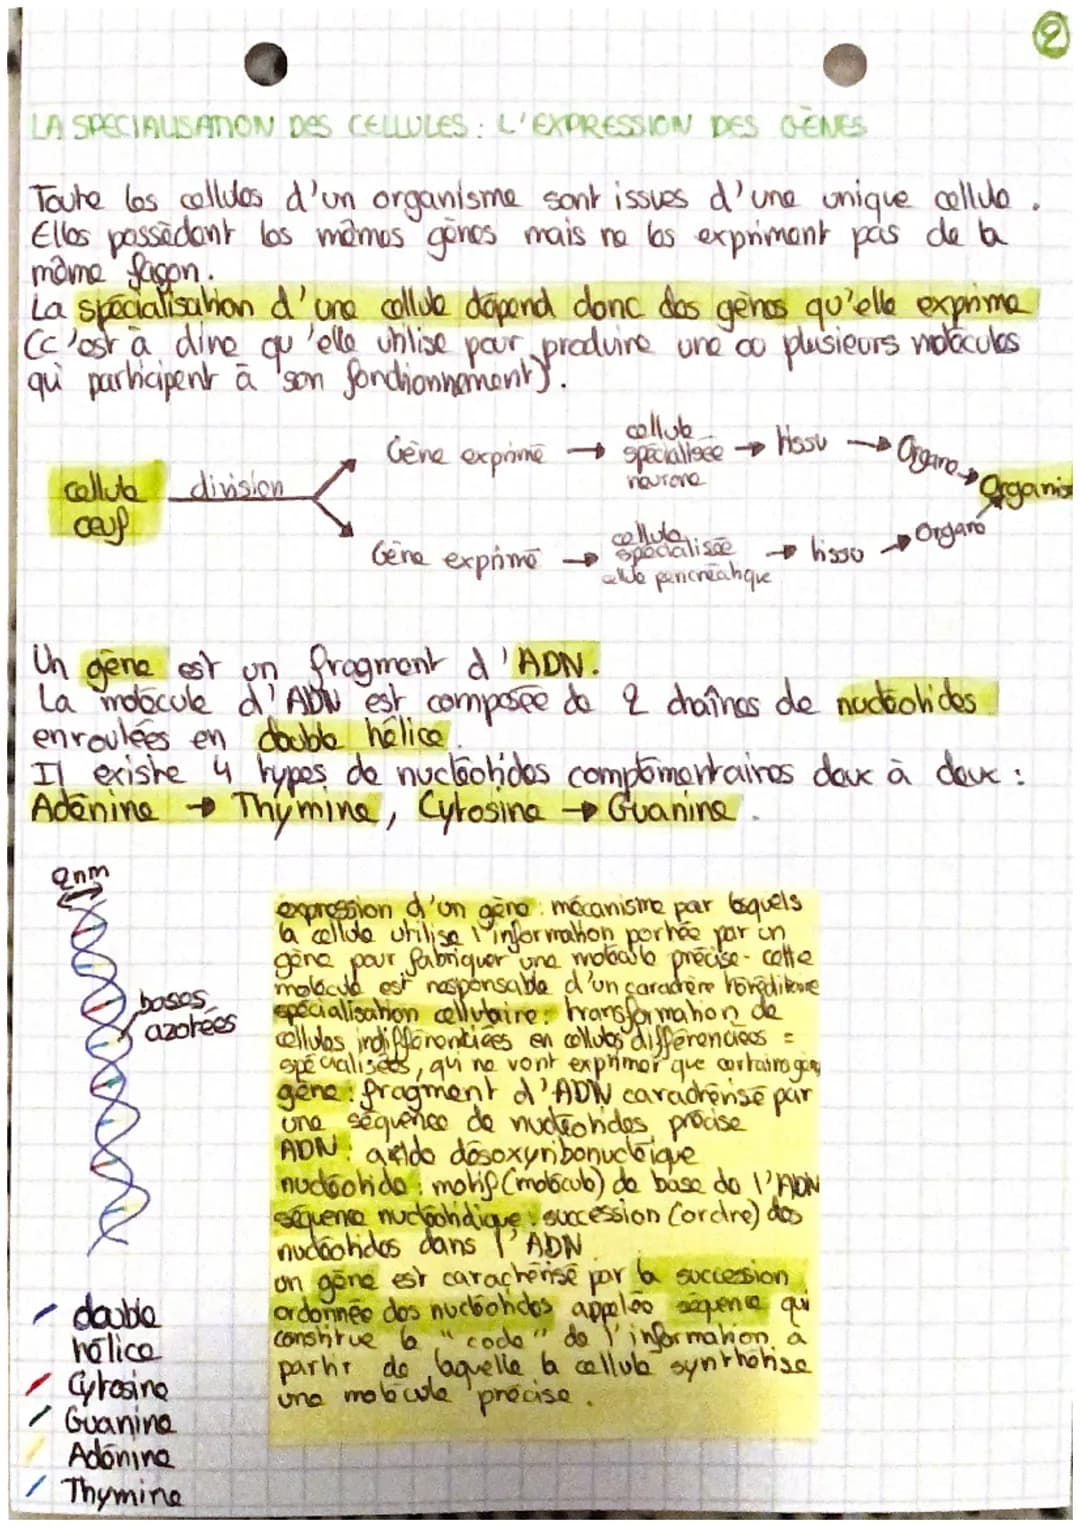 2
LA SPECIALISATION DES CELLULES : L'EXPRESSION DES GÈNES
Toute les cellules d'un organisme sont issues d'une unique cellule.
Elles possèdent les mêmes gènes mais ne les expriment pas de la
même façon.
La spécialisation d'une cellule dépend donc des gènes qu'elle exprime
(c'est à dire qu'elle utilise pour produire une ou plusieurs molécules
qui participent à son fonctionnement).
cellule
œuf
division
Gène exprimé → cellule
spécialisée
neurone
→ tissu → Organe → Organis
Gène exprimé → cellule
spécialisée
cellule pancréatique
→ tissu → Organe
Un gène est un fragment d'ADN.
La molécule d'ADN est composée de 2 chaînes de nucléotides
enroulées en double hélice.
Il existe 4 types de nucléotides complémentaires deux à deux :
Adénine → Thymine, Cytosine → Guanine.
2nm
bases
azotées
double
hélice
Cytosine
Guanine
Adénine
Thymine
expression d'un gène : mécanisme par lesquels
la cellule utilise l'information portée par un
gène pour fabriquer une molécule précise - cette
molécule est responsable d'un caractère héréditaire
spécialisation cellulaire : transformation de
cellules indifférenciées en cellules différenciées =
spécialisées, qui ne vont exprimer que certains gèn
gène : fragment d'ADN caractérisé par
une séquence de nucléotides précise
ADN : acide désoxyribonucléique
nucléotide : motif (molécule) de base de l'ADN
séquence nucléotidique : succession (ordre) des
nucléotides dans l'ADN
un gène est caractérisé par la succession
ordonnée des nucléotides appelée séquence qui
constitue le "code" de l'information à
partir de laquelle la cellule synthétise
une molécule précise.